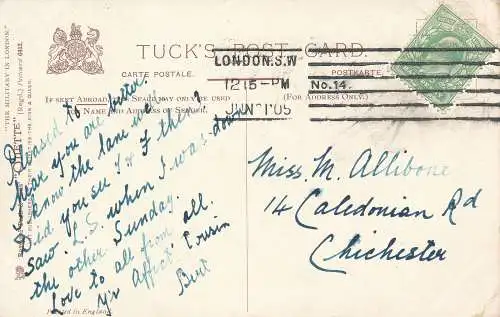 TUCK'S POST CARD
CARTE POSTALE.
POSTKARTE.
IF SENT ABROAD, THIS SPACE MAY ONLY BE USED
(FOR ADDRESS ONLY.)
NAME AND ADDRESS OF SENDER.
LONDON.S.W
12 15-PM
JUN 1 05
No.14.
"THE MILITARY IN LONDON."
Pleased to
hear you are better.
know the lane well
Did you see I & F there?
saw L.S. when I was down
the other Sunday.
Love to all from all.
Yr Affect. Cousin
Bert
Miss M. Allibone
14 Caledonian Rd
Chichester
Printed in England